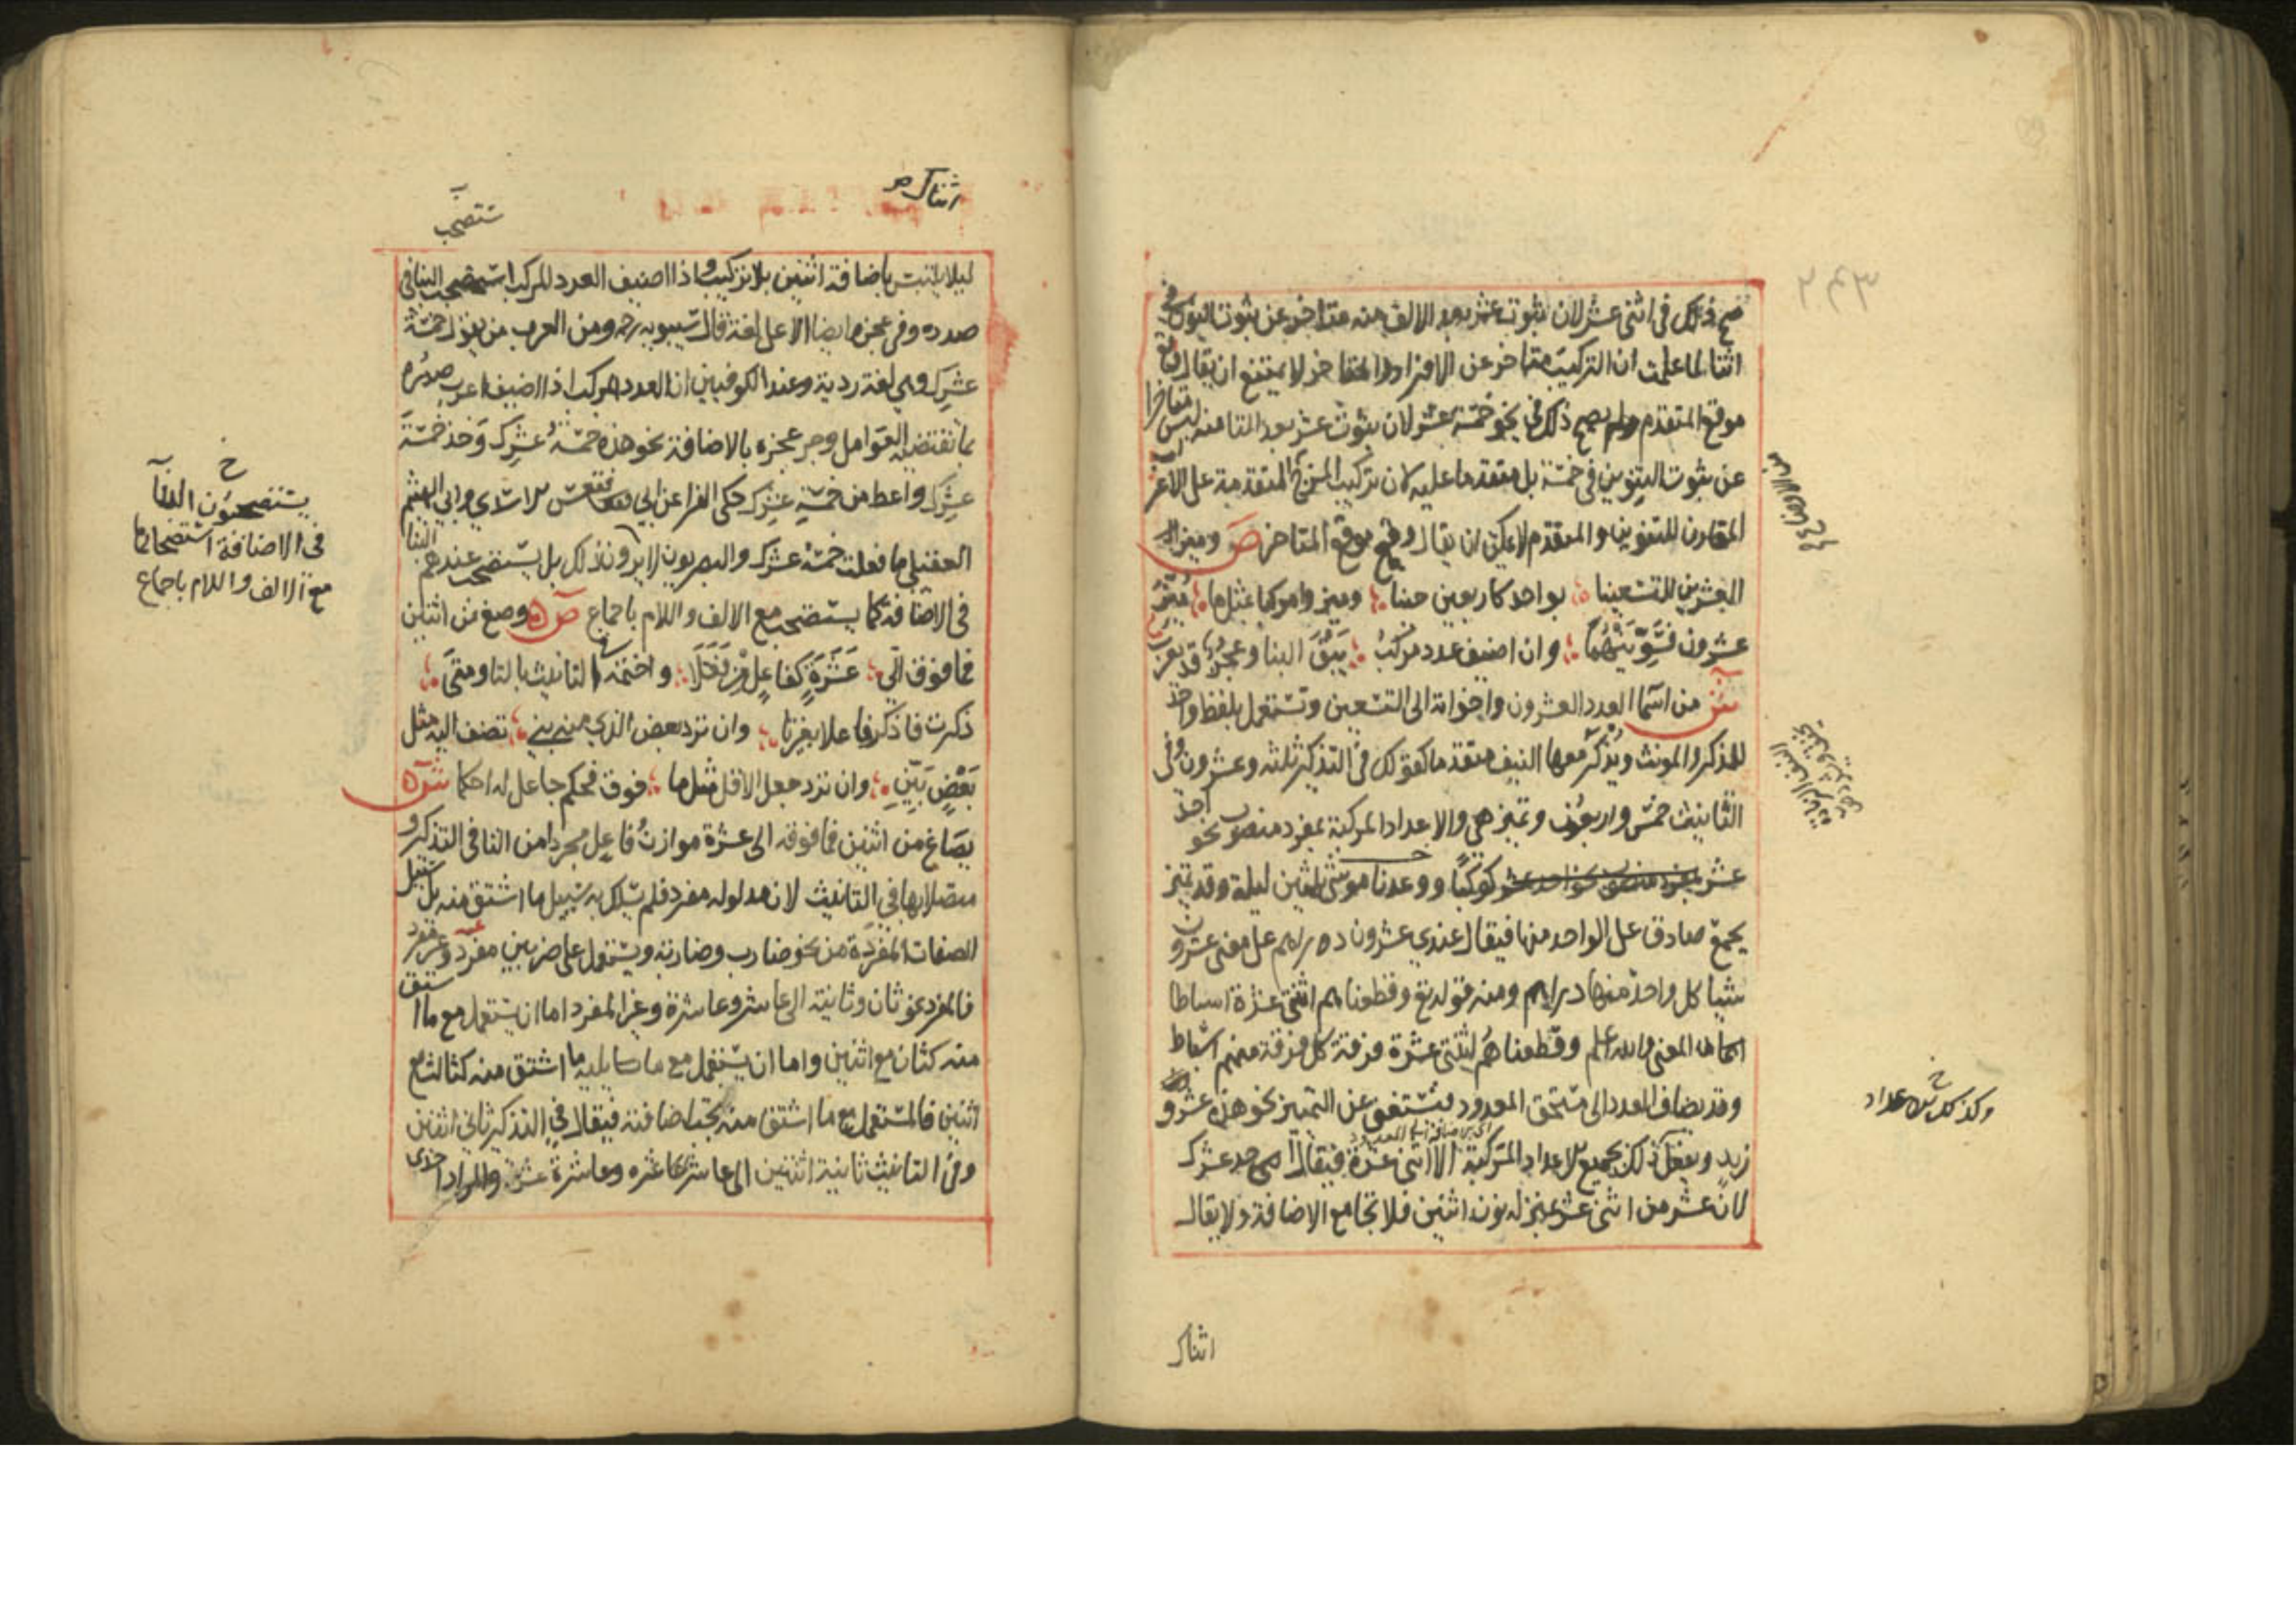 صح ذلك في اثني عشر لان ثبوت عشر بعد الالف منه متاخر عن ثبوت النون في
اثنا لما علمت ان التركيب متاخر عن الافراد والمتاخر لا يمتنع ان يقال وقع
موقع المتقدم ولم يصح ذلك في نحو خمسة عشر لان ثبوت عشر بعد التا منه ليس متاخرا
عن ثبوت التنوين في خمسة بل متقدما عليه لان تركيب المزج المتقدمة على الاعراب
المقارن للتنوين والمتقدم لا يمكن ان يقال وقع موقع المتاخر ص وميز
العشرين للتسعينا بواحد كاربعين حينا وميزوا مركبا بمثل ما ميز
عشرون فسوينهما وان اضيف عدد مركب يبق البنا وعجز قد يعرب
ش من اسما العدد العشرون واخواته الى التسعين وتستعمل بلفظ واحد
للمذكر والمونث ويذكر معها النيف متقدما كقولك في التذكير ثلثة وعشرون وفي
التانيث خمس واربعون وتميز هي والاعداد المركبة بمفرد منصوب نحو احد
عشر كوكبا ووعدنا موسى ثلثين ليلة وقد تميز
بجمع صادق على الواحد منها فيقال عندي عشرون دراهم على معنى عشرون
شيا كل واحد منها دراهم ومنه قوله تع وقطعناهم اثنتي عشرة اسباطا
المعنى والله اعلم وقطعناهم اثنتي عشرة فرقة كل فرقة منهم اسباط
وقد يضاف العدد الى مستحق المعدود فيستغنى عن التمييز نحو هذه عشرو
زيد ويفعل ذلك بجميع الاعداد المركبة الا اثني عشرة فيقال احد عشرك
لان عشر من اثني عشر بمنزلة نون اثنين فلا تجامع الاضافة ولا يقال
اثناك
وكذلك
اثناك
ستصحب
ليلا يلتبس باضافة اثنين بلا تركيب واذا اضيف العدد المركب استصحب البنا في
صدره وفي عجزه ايضا الا على لغة قال سيبويه رحه ومن العرب من يقول خمسة
عشرك وهي لغة ردية وعند الكوفيين ان العدد المركب اذا اضيف اعرب صدره
بما تقتضيه العوامل وجر عجزه بالاضافة نحو هذه خمسة عشرك وخذ خمسة
عشرك واعط من خمسة عشرك حكى الفرا عن ابي فقعس الاسدي وابي الهيثم
العقيلي ما فعلت خمسة عشرك والبصريون لا يرون ذلك بل يستصحب عندهم البنا
في الاضافة كما يستصحب مع الالف واللام باجماع ص وصغ من اثنين
فما فوق الى عشرة كفاعل من فعلا واختمه في التانيث بالتا ومتى
ذكرت فاذكر فاعلا بغير تا وان ترد بعض الذي منه بني تضف اليه مثل
بعض بين وان ترد جعل الاقل مثل ما فوق فحكم جاعل له احكما ش
يصاغ من اثنين فما فوقه الى عشرة موازن فاعل مجردا من التا في التذكير و
متصلا بها في التانيث لان مدلوله مفرد فلم يسلك به سبيل ما اشتق منه بل سبيل
الصفات المفردة من نحو ضارب وضاربة ويستعمل على ضربين مفرد وغير مفرد
فالمفرد نحو ثان وثانية الى عاشر وعاشرة وغير المفرد اما ان يستعمل مع ما اشتق
منه كثان مع اثنين واما ان يستعمل مع ما يليه ما اشتق منه كثالث مع
اثنين فالمستعمل مع ما اشتق منه تجب اضافته فيقال في التذكير ثاني اثنين
وفي التانيث ثانية اثنتين الى عاشر عشره وعاشرة عشر والمراد احدى
خ
يستصحبون البنا
في الاضافة استصحابها
مع الالف واللام باجماع